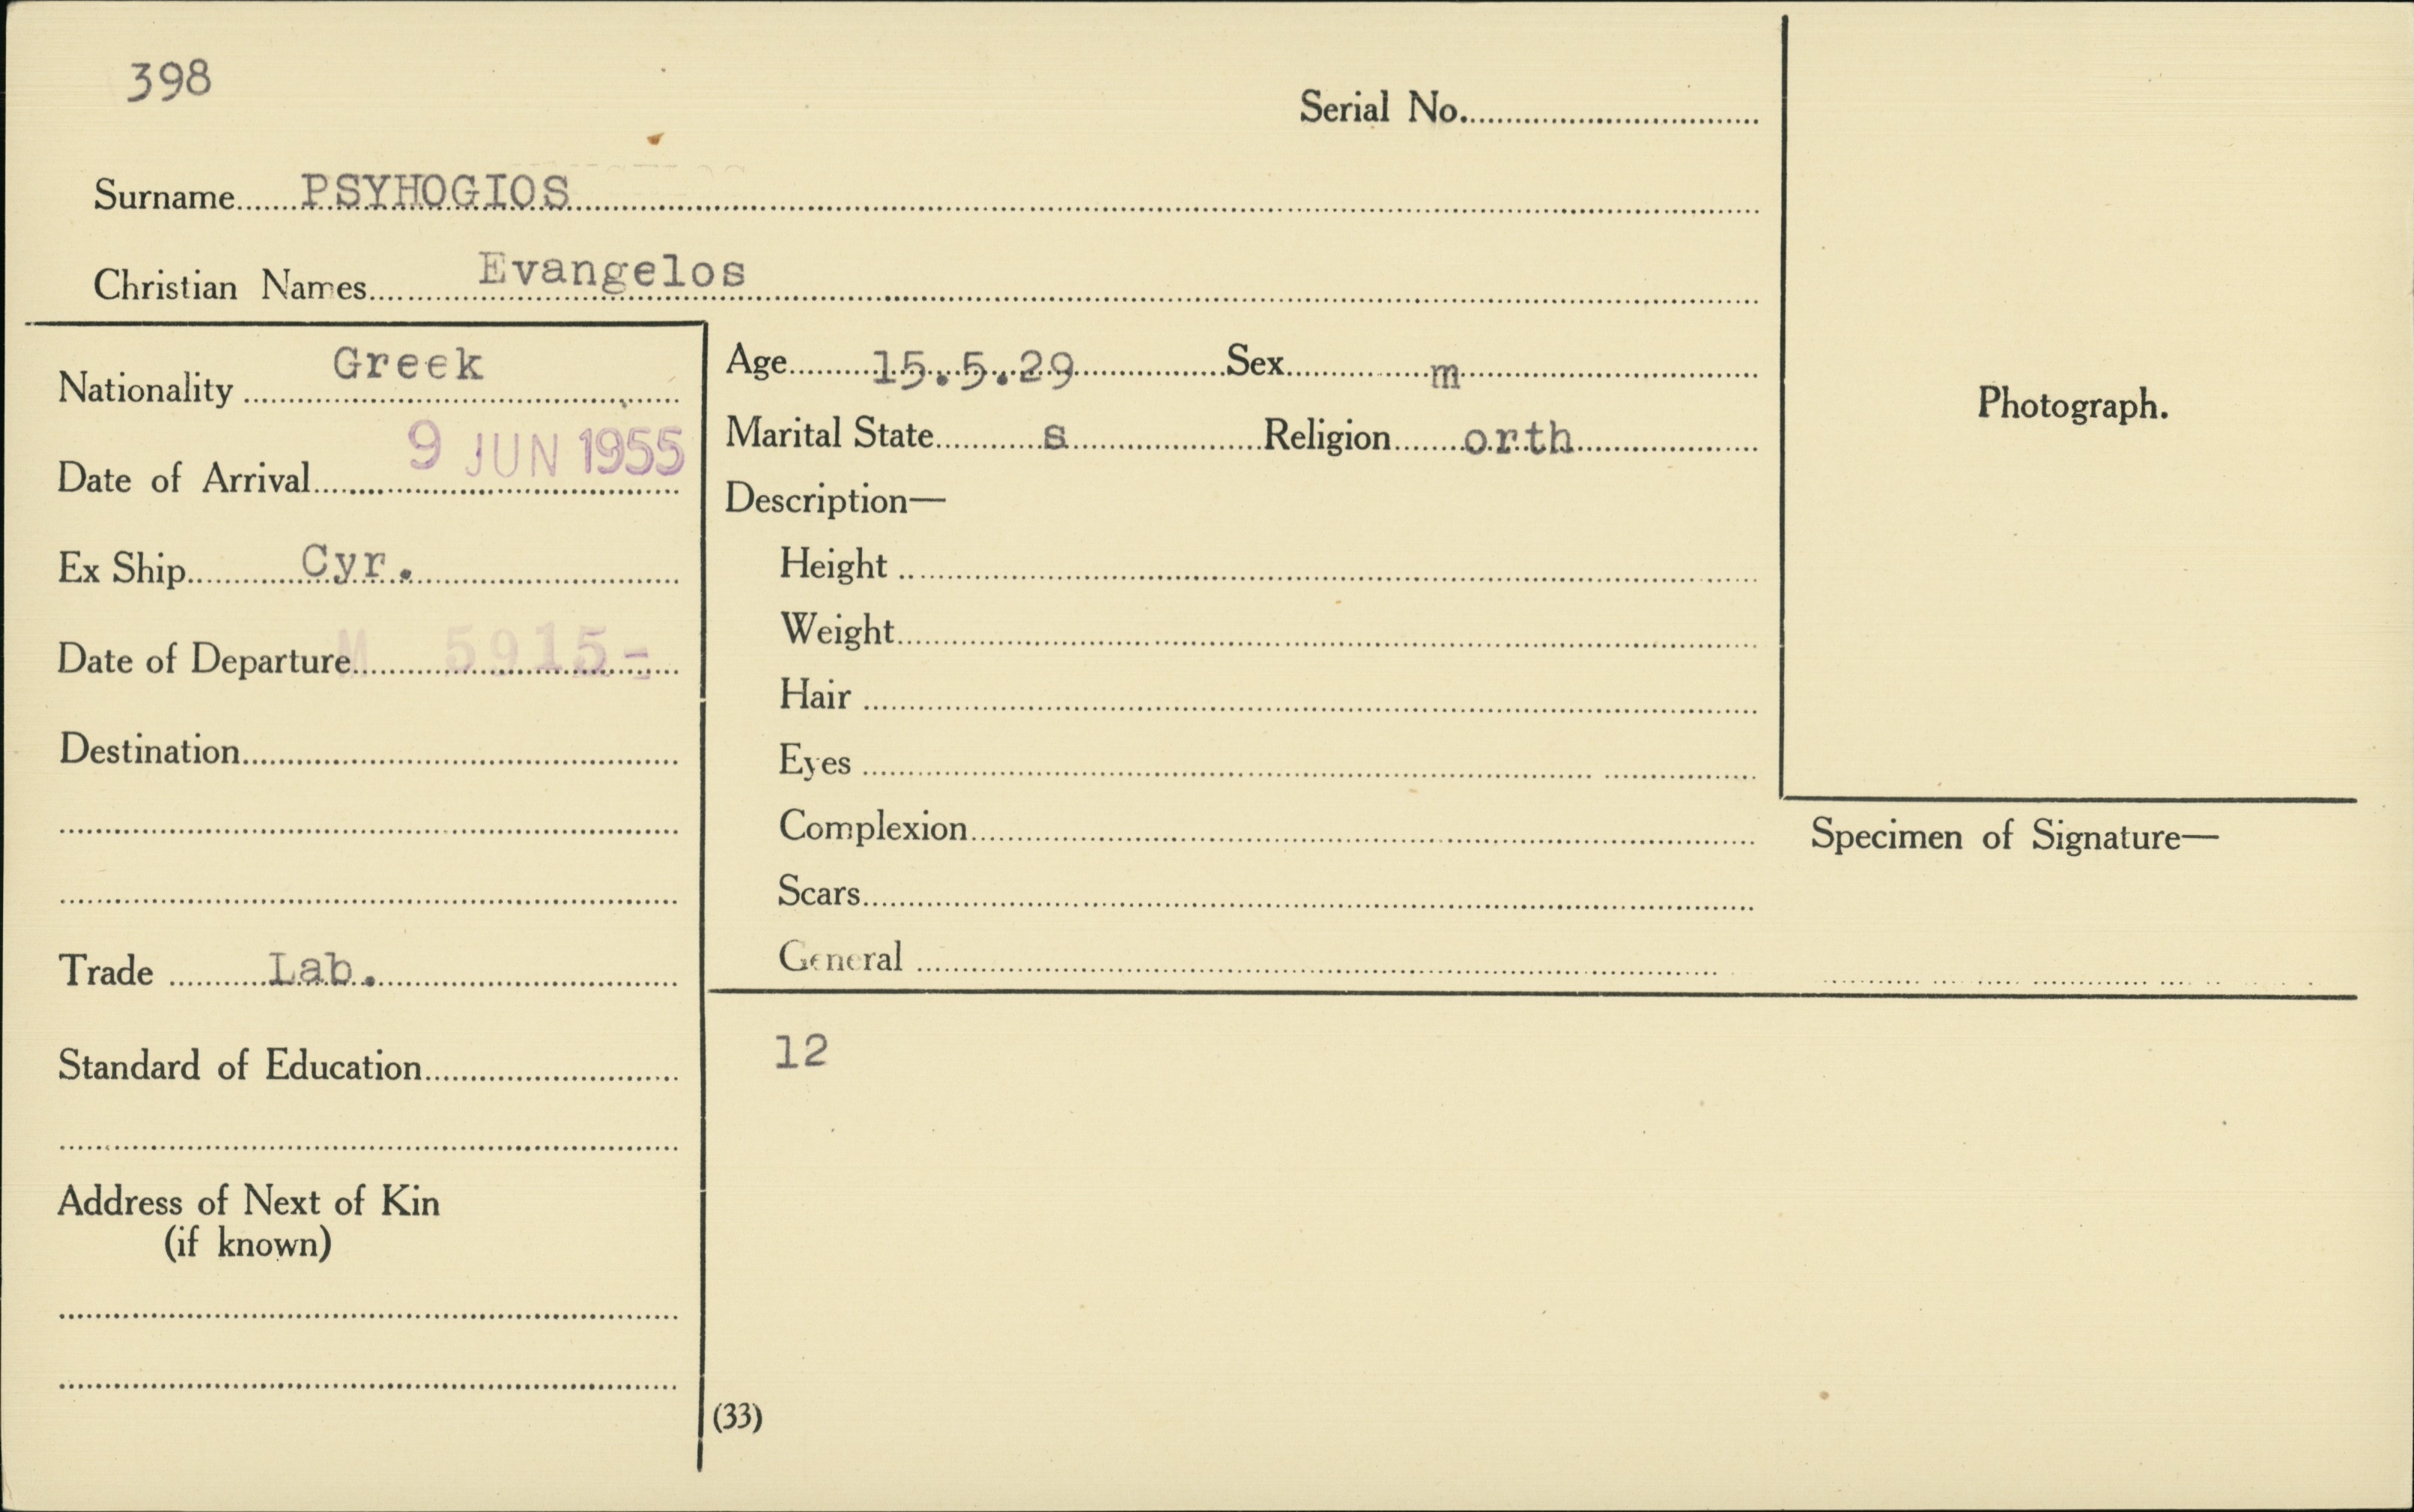 398
Serial No.
Surname PSYHOGIOS
Christian Names Evangelos
Nationality Greek
Date of Arrival 9 JUN 1955
Ex Ship Cyr.
Date of Departure M 5915-
Destination
Trade Lab.
Standard of Education
Address of Next of Kin
(if known)
Age 15.5.29 Sex m
Marital State s Religion orth
Description—
Height
Weight
Hair
Eyes
Complexion
Scars
General
Photograph.
Specimen of Signature—
12
(33)